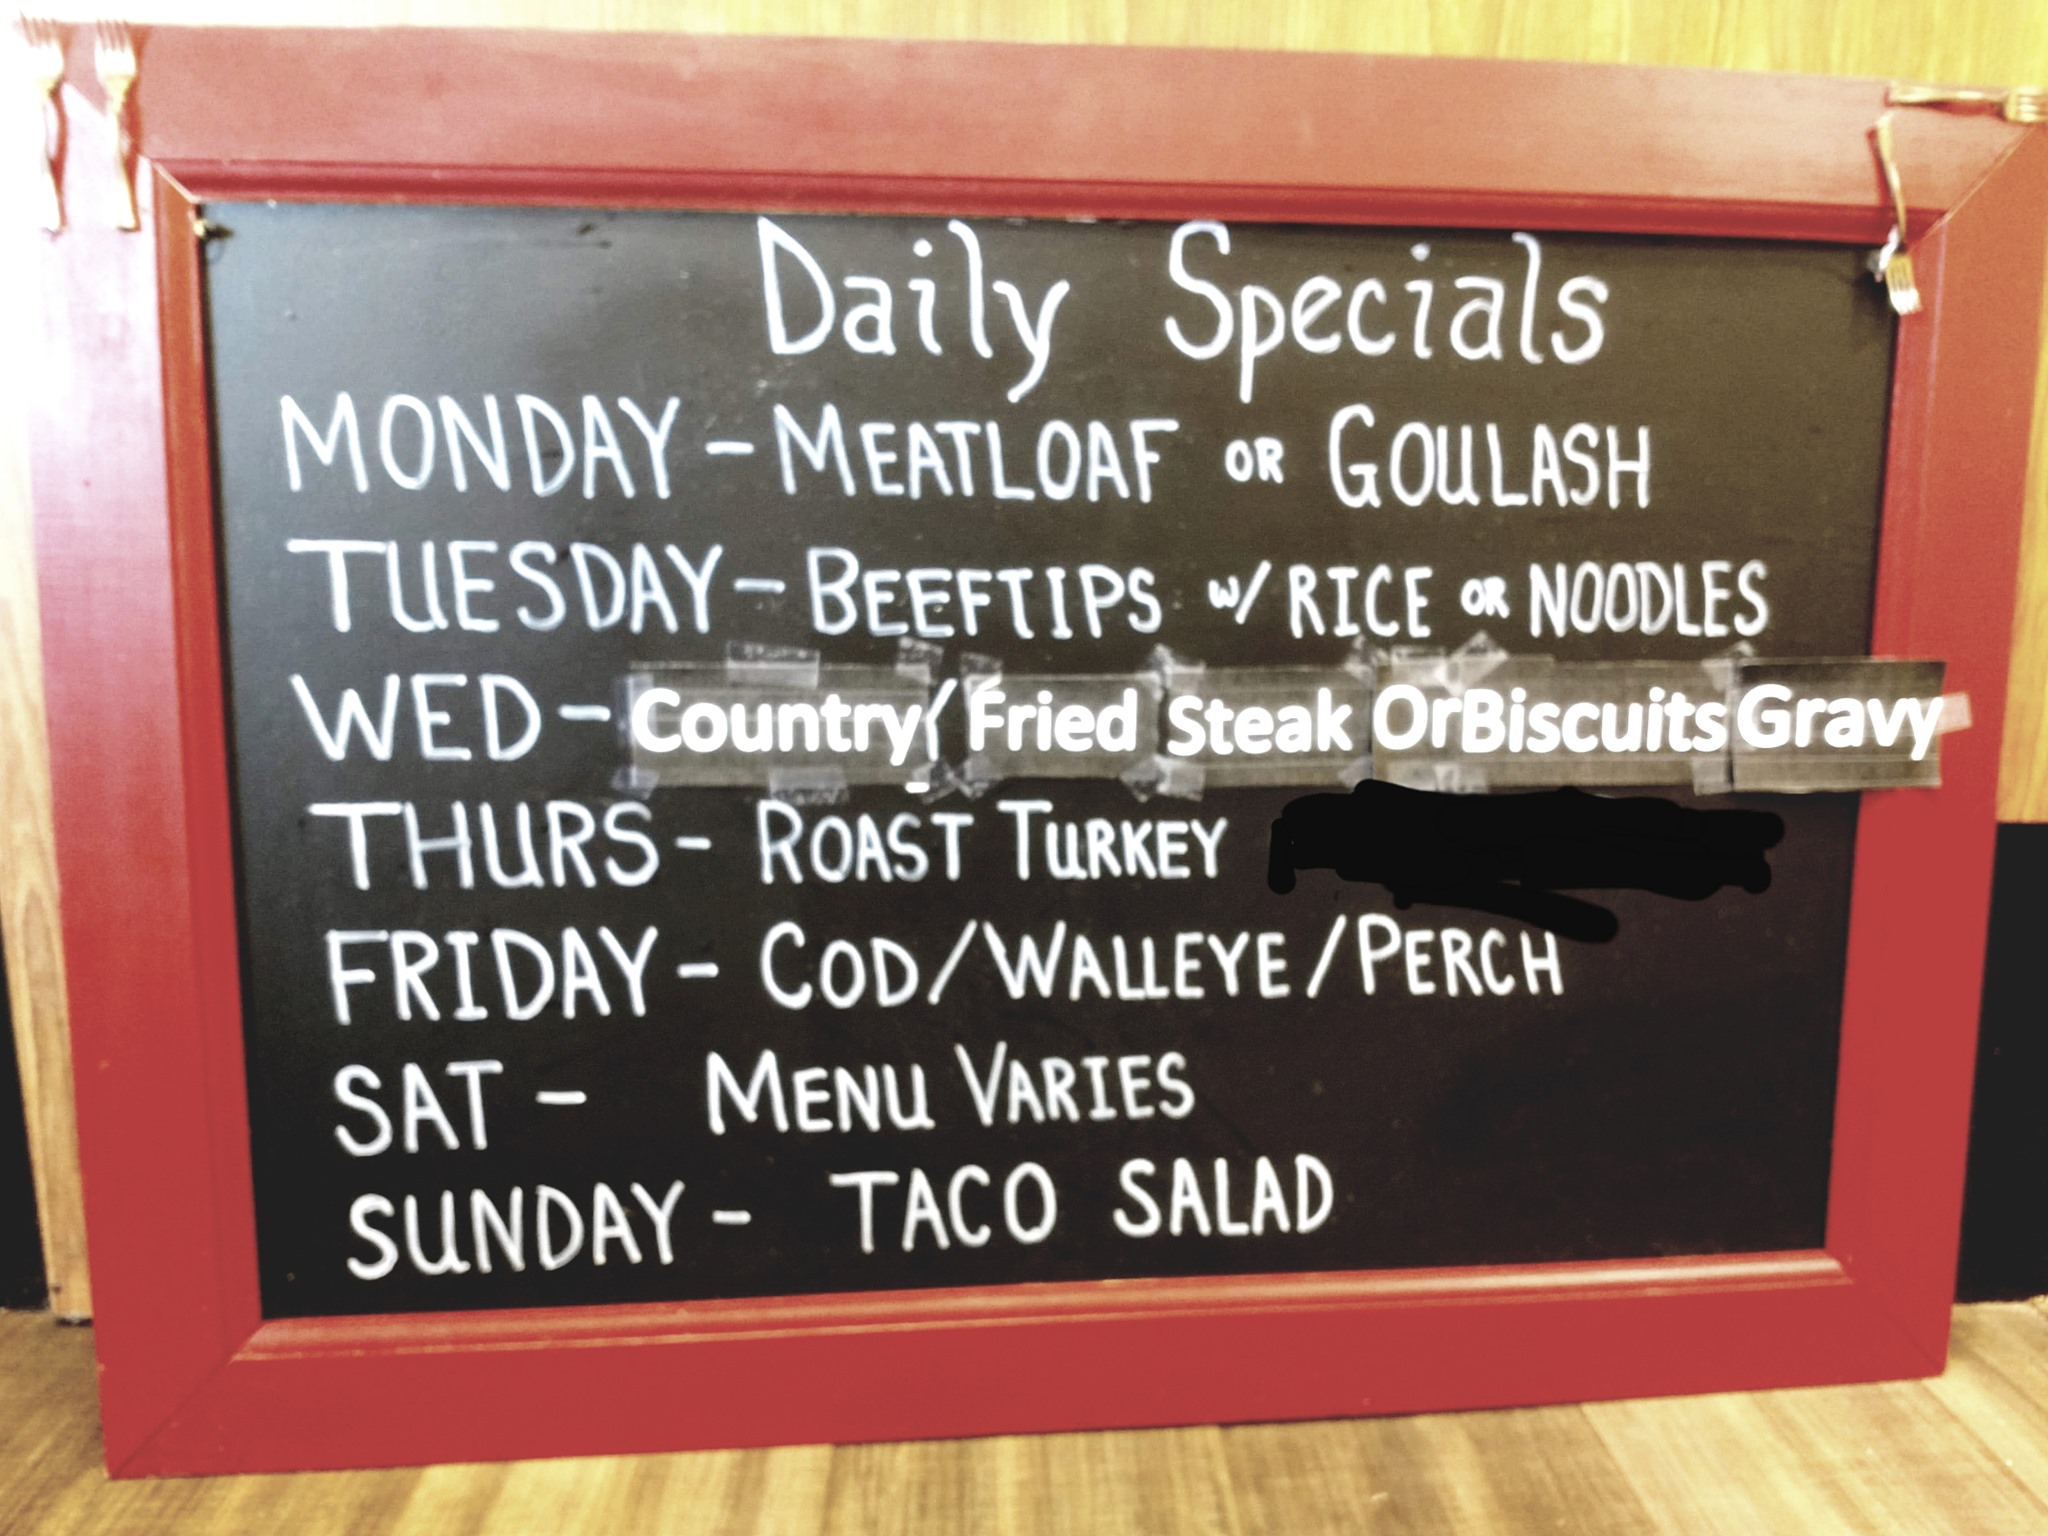 Daily Specials
MONDAY - MEATLOAF OR GOULASH
TUESDAY - BEEFTIPS w/ RICE OR NOODLES
WED - Country / Fried Steak Or Biscuits Gravy
THURS - ROAST TURKEY
FRIDAY - COD/WALLEYE/PERCH
SAT - MENU VARIES
SUNDAY - TACO SALAD